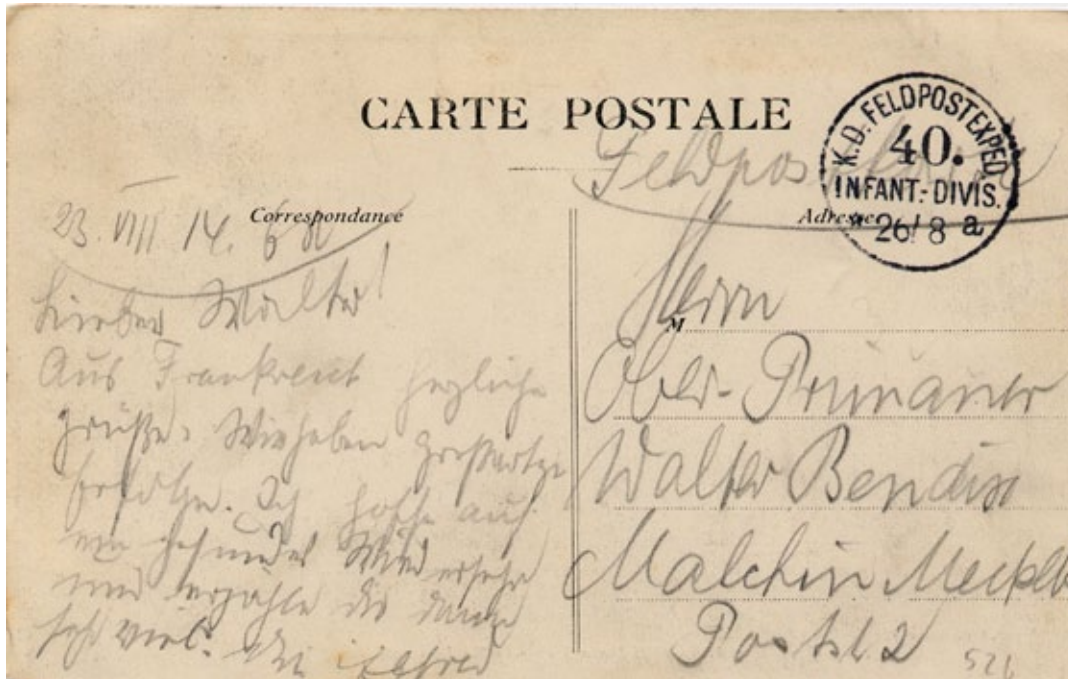 CARTE POSTALE
K.D. FELDPOSTEXPED
40.
INFANT.-DIVIS.
* 26/8 a
Feldpostkarte
Correspondance
Adresse
23. VIII 14. 6 00
Lieber Walter!
Aus Frankreich herzliche
Grüße. Wir haben großartige
Erfolge. Ich hoffe auf
ein gesundes Wiedersehn
und erzähle dir dann
sehr viel. Dein Alfred
M
Herrn
Ober-Primaner
Walter
Malchin Mecklb
Postst. 2
526